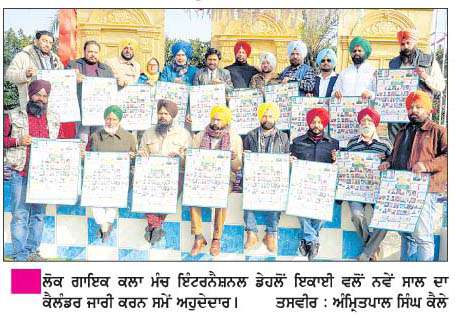 ਲੋਕ ਗਾਇਕ ਕਲਾ ਮੰਚ ਇੰਟਰਨੈਸ਼ਨਲ ਡੇਹਲੋਂ ਇਕਾਈ ਵਲੋਂ ਨਵੇਂ ਸਾਲ ਦਾ
ਕੈਲੰਡਰ ਜਾਰੀ ਕਰਨ ਸਮੇਂ ਅਹੁਦੇਦਾਰ। ਤਸਵੀਰ : ਅੰਮ੍ਰਿਤਪਾਲ ਸਿੰਘ ਕੈਲੇ